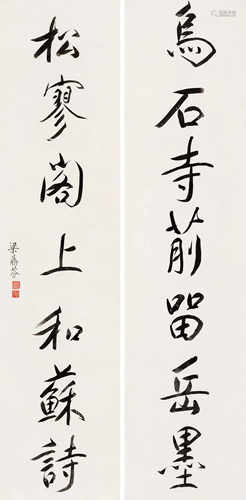 烏石寺前留岳墨
松寥閣上和蘇詩
梁鼎芬